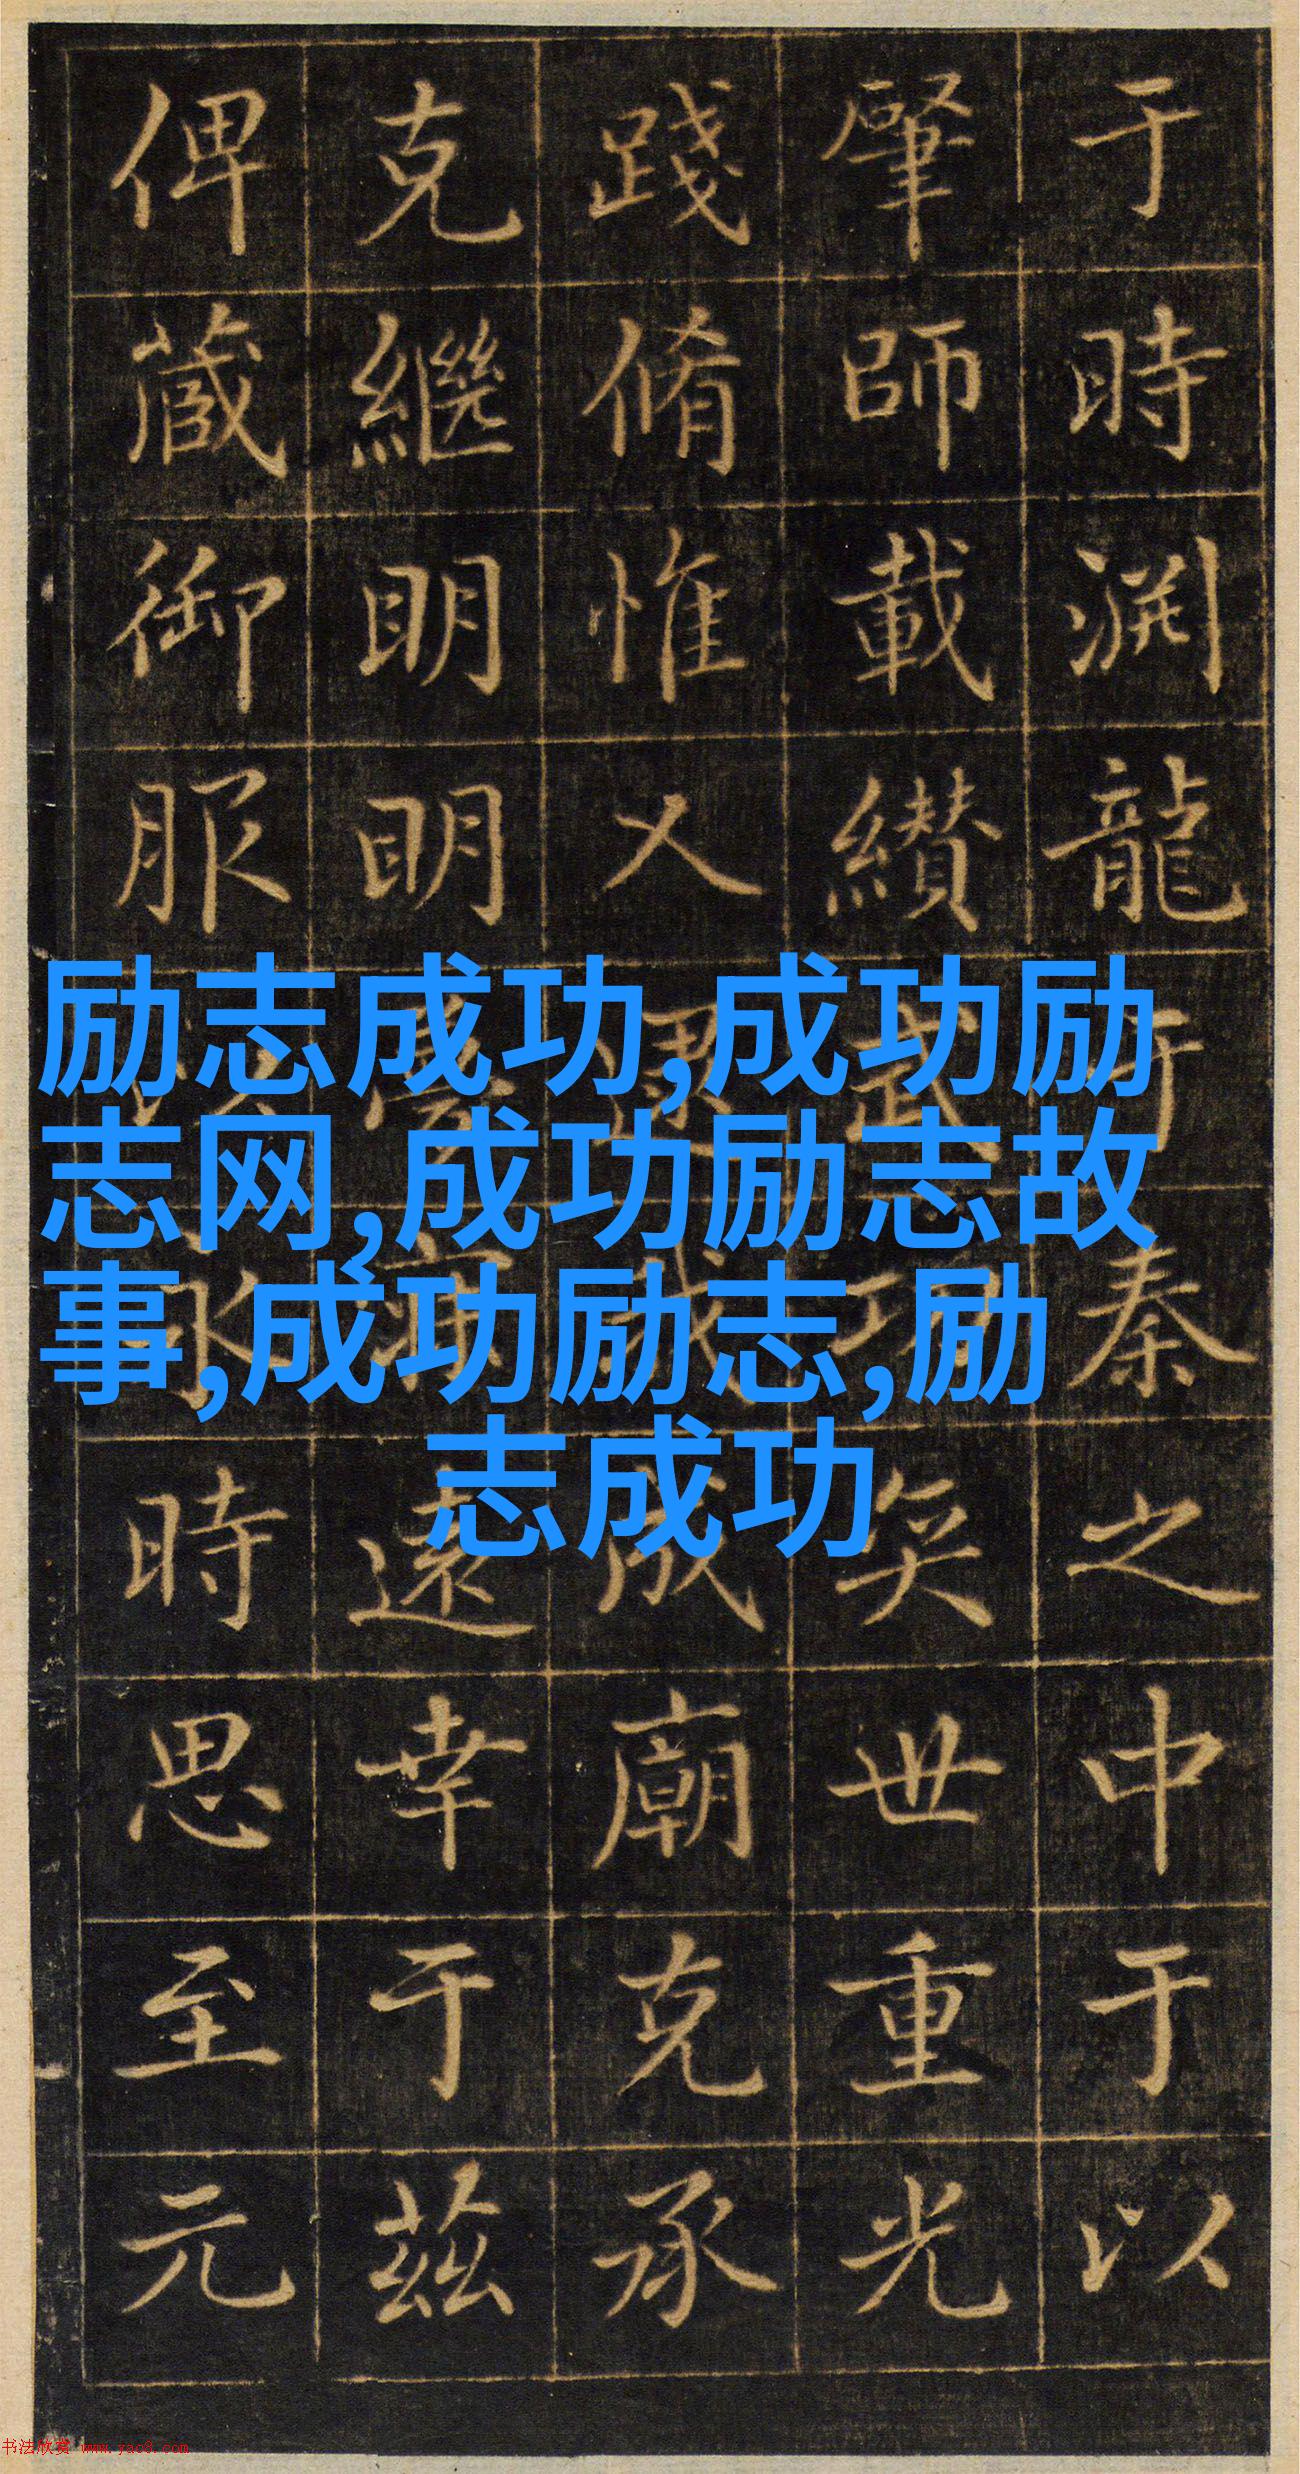 于時渊龍于秦之中于以
肇師載纘武功奕世重光
踐脩惟乂我成廟克承
克繼明明遠幸于茲
俾蔵御服以永時思至元
励志成功,成功励
志网,成功励志故
事,成功励志,励
志成功
书法欣赏 www.yac8.com